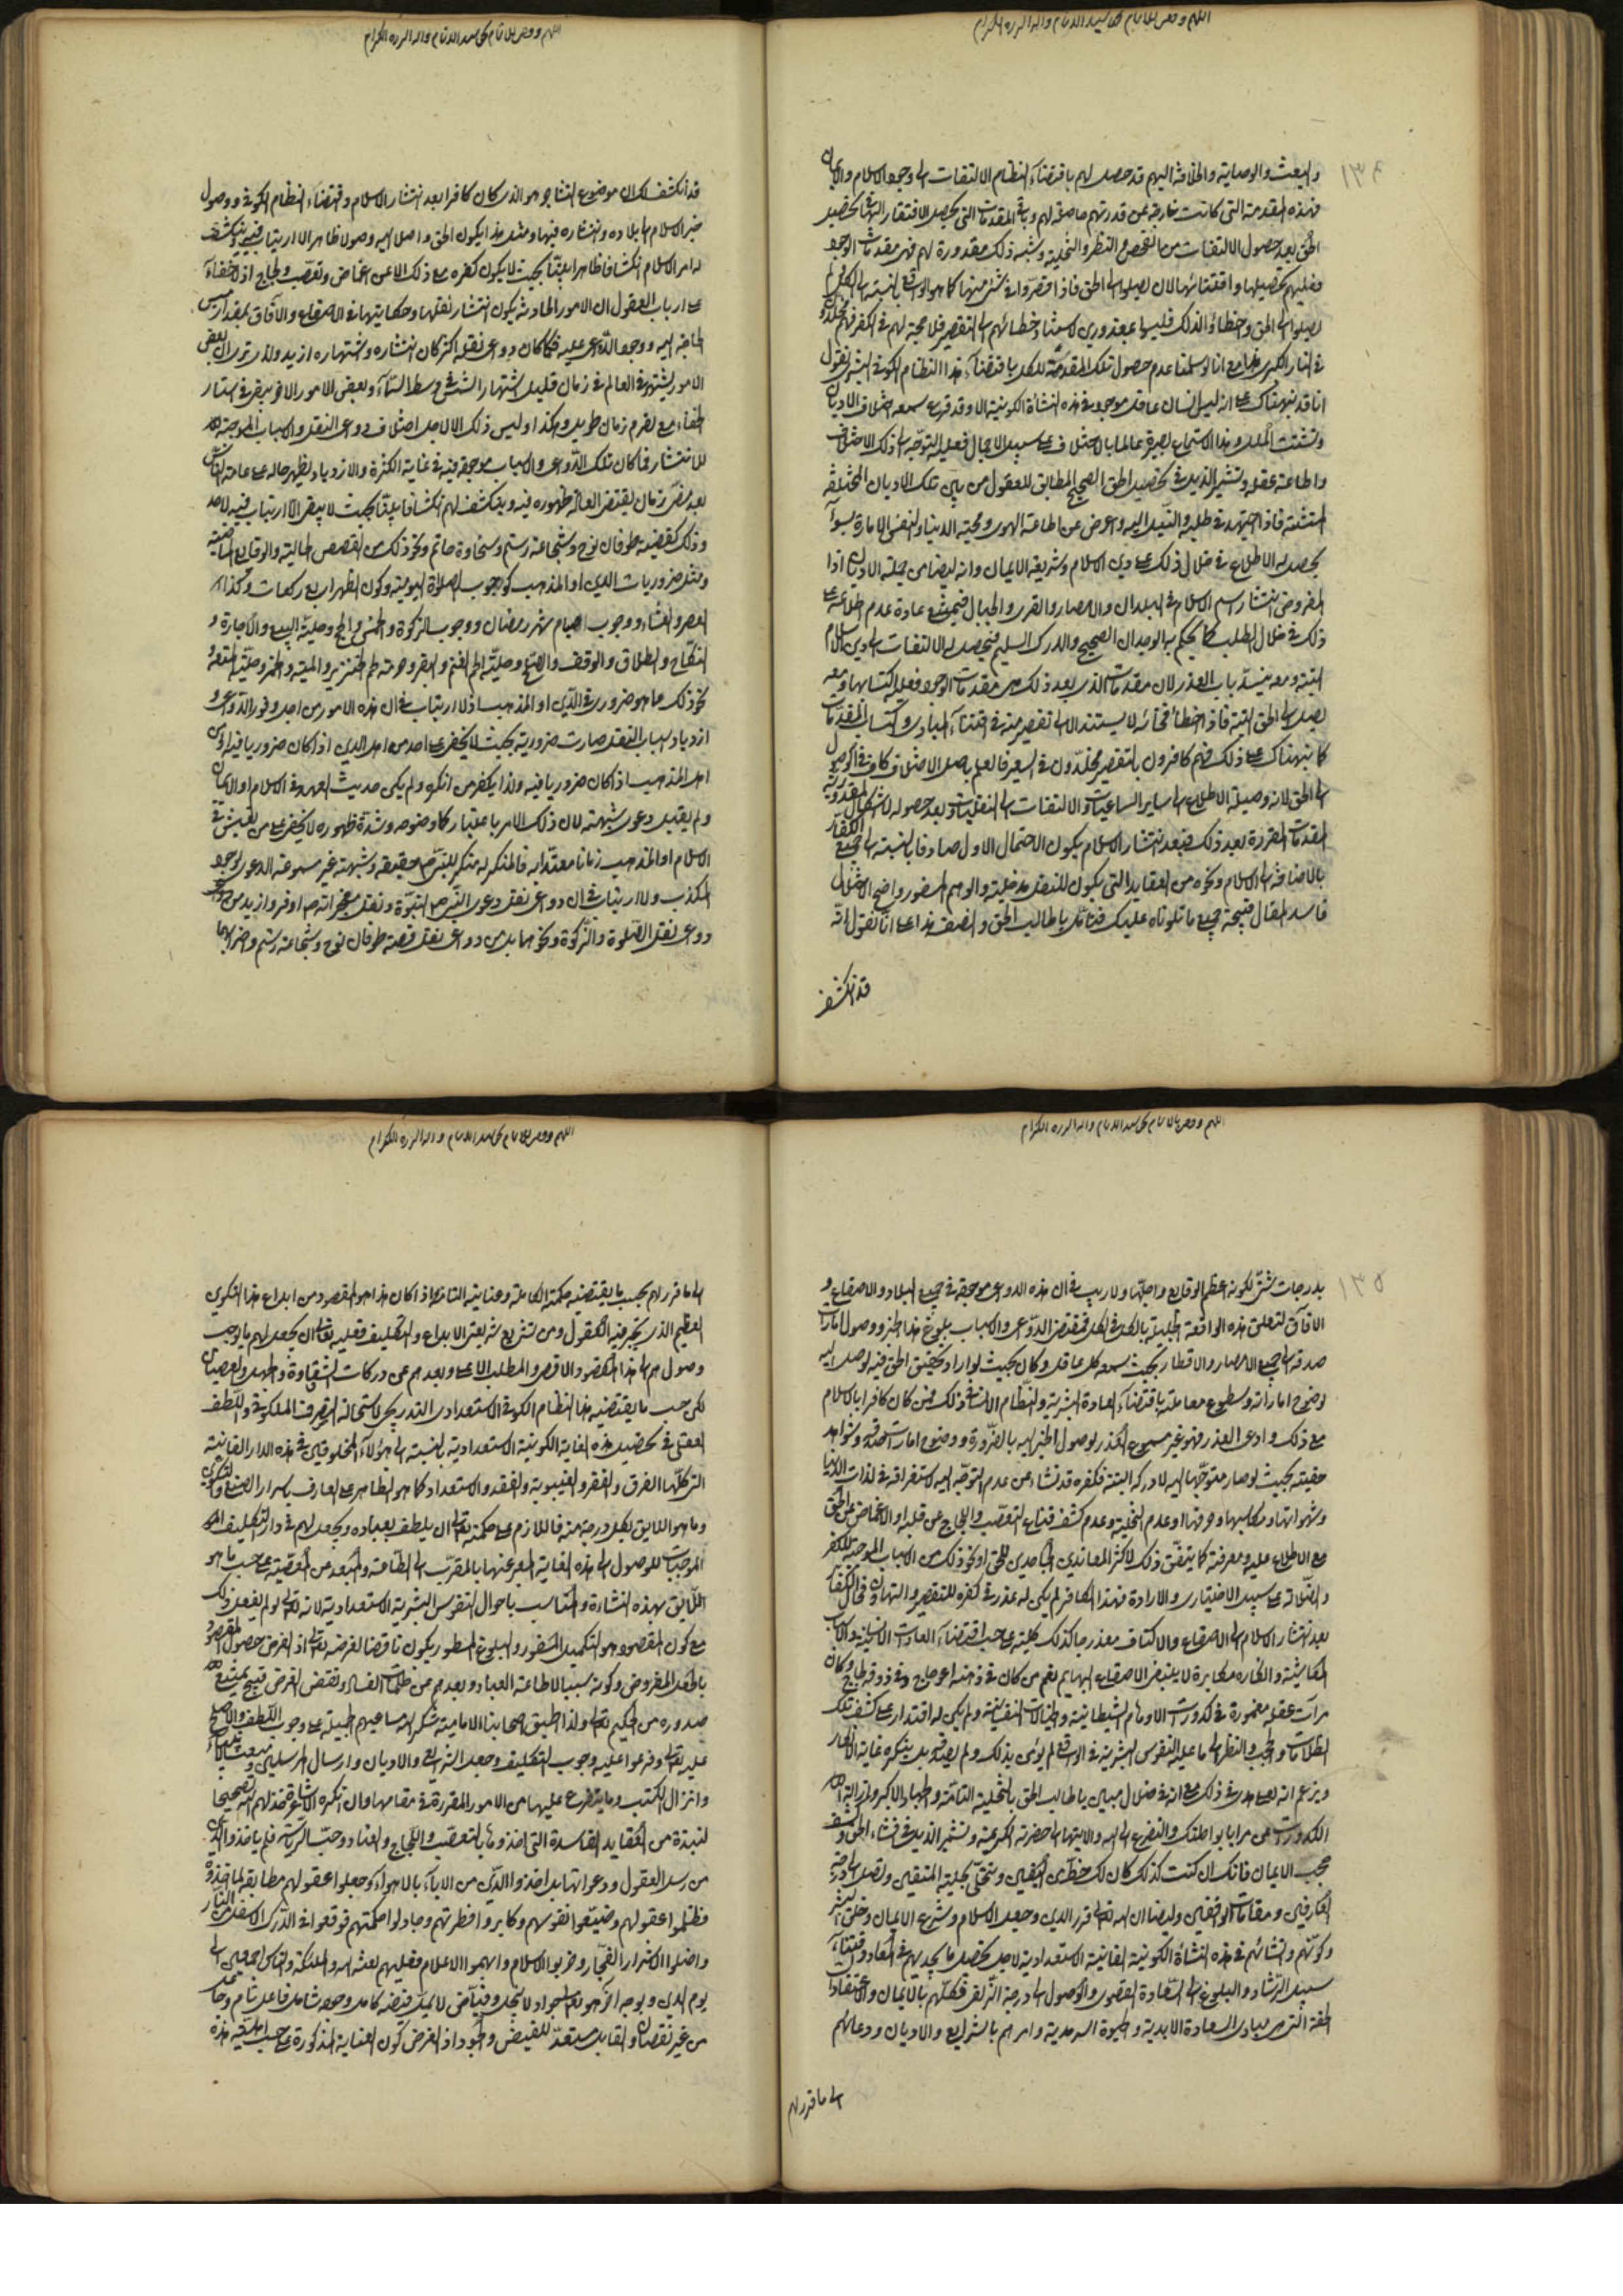 اللهم ووفق للاتمام بحق سيد الانام واله البررة الكرام
١٣٤
والبعث والوصاية والخلافة اليهم قد حصل لهم باقتضاء النظام الالتفات الى وجود الاسلام والايمان
فهذه المقدمة التي كانت خارجة عن قدرتهم حاصلة لهم وباقي المقدمات التي يحصل الافتقار اليها في تحصيل
الحق بعد حصول الالتفات من التفحص والنظر والتخلية وشبه ذلك مقدورة لهم فهي مقدمات الوجود
فعليهم تحصيلها واقتنائها لان يصلوا الى الحق فاذا قصروا في شيء منها كما هو الواقع بالنسبة الى الكفار لم
يصلوا الى الحق وخطاؤا لذلك فليسوا بمعذورين لاستناد خطائهم الى التقصير فلا حجة لهم في الكفر فهم مخلدون
في النار الكبرى مع انا لو سلمنا عدم حصول تلك المقدمة للكل باقتضاء هذا النظام الكوني البشري نقول
انا قد نبهناك على انه ليس انسان عاقل موجود في هذه النشأة الكونية الا وقد قرع سمعه اختلاف الاديان
وتشتت الملل وبهذا الاستماع يصير عالما بالاختلاف على سبيل الاجمال فعليه التوجه الى ذلك الاختلاف
واطاعة عقله وتشمير الذيل في تحصيل الحق الصحيح المطابق للعقول من بين تلك الاديان المختلفة
المتشتتة فاذا اجتهد في طلبه والنيل اليه واعرض عن اطاعة الهوى ومحبة الدنيا والنفس الامارة بالسوء
يحصل له الاطلاع في خلال ذلك على دين الاسلام وشريعة الايمان وانه ايضا من جملة الاديان اذا
المفروض انتشار اسم الاسلام في البلدان والامصار والقرى والجبال فيمتنع عادة عدم اطلاعه على
ذلك في خلال الطلب كما يحكم به الوجدان الصحيح والدرك السليم فيحصل له الالتفات الى دين الاسلام
البتة ومعه ينسد باب العذر لان مقدمات الذي بعد ذلك هي مقدمات الوجود فعليه اكتسابها ومعه
يصل الى الحق البتة فاذا اخطأ فخطائه لا يستند الا الى تقصير منه في اقتناء المبادي واكتساب المقدمات
كما نبهناك على ذلك فهم كافرون بالتقصير مخلدون في السعير فالعلم باصل الاختلاف كاف في الوصول
الى الحق لانه وصيلة الاطلاع الى ساير الساعيات والالتفات الى النقليات وبعد حصوله لا اشكال في مقدورية
المقدمات المقررة بعد ذلك فبعد انتشار الاسلام يكون الاحتمال الاول صادقا بالنسبة الى جميع الكفار
بالاضافة الى الاسلام ونحوه من العقايد التي يكون للنقل مدخلية والوهم المسفور واضح الاختلال
فاسد المقال فنتيجة جميع ما تلوناه عليك فتأمل يا طالب الحق والنصف هذا على انا نقول انه
قد انكشف
اللهم ووفق للاتمام بحق سيد الانام واله البررة الكرام
قد انكشف لك ان موضوع التشاجر هو الذي كان كافرا بعد انتشار الاسلام واقتضاء النظام الكوني ووصول
خبر الاسلام الى بلاده وانتشاره فيها ومثل هذا يكون الحق واصلا اليه وصولا ظاهرا لا ارتياب فيه وينكشف
له امر الاسلام انكشافا ظاهرا بينا بحيث لا يكون كفره مع ذلك الا عن اغماض وتعصب ولجاج اذ لا خفاء
على ارباب العقول ان الامور الحادثة يكون انتشار نقلها وحكايتها في الاصقاع والآفاق بمقدار مسيس
الحاجة اليه ووجود الدواعي عليه فكلما كان دواعي نقله اكثر كان انتشاره واشتهاره ازيد ولذا ترى ان بعض
الامور يشتهر في العالم في زمان قليل اشتهار الشمس في وسط السماء وبعض الامور الاخر يبقى في استار
الخفاء مع تصرم زمان طويل وهكذا وليس ذلك الا لاجل اختلاف دواعي النقل والاسباب الموجبة له
للانتشار فما كان تلك الدواعي والاسباب موجودة فيه في غاية الكثرة والازدياد يظهر حاله على عامة الناس
بعد مضي زمان يقتضي العادة ظهوره فيه وينكشف لهم انكشافا بينا بحيث لا يبقى الارتياب فيه لاحد
وذلك كقضية طوفان نوح وشجاعة رستم وسخاوة حاتم ونحو ذلك من القصص الحالية والوقايع الماضية
ومثل ضروريات الدين او المذهب كوجوب الصلاة اليومية وكون الظهر اربع ركعات وكذا
العصر والعشاء ووجوب صيام شهر رمضان ووجوب الزكوة والخمس والحج وحلية البيع والاجارة و
النكاح والطلاق والوقف والصلح وحلية لحم الغنم والبقر وحرمة لحم الخنزير والميتة والخمر وحلية المتعة و
نحو ذلك مما هو ضروري في الدين او المذهب اذ لا ارتياب في ان هذه الامور من اجل وفور الدواعي و
ازدياد اسباب النقل صارت ضرورية بحيث لا يخفى على احد من اهل الدين اذا كان ضروريا فيه او من
اهل المذهب اذا كان ضروريا فيه ولذا يكفر من انكره ولم يكن حديث العهد في الاسلام او الايمان
ولم يقبل دعوى شبهته لان ذلك الامر باعتبار كما وضوحه وشدة ظهوره لا يخفى على من يعيش في
الاسلام او المذهب زمانا معتدا به فالمنكر له منكر للنبي ص حقيقة وشبهته غير مسموعة الدعوى لوجود
المكذب ولا ارتياب في ان دواعي نقل دعوى النبي ص النبوة ونقل معجزاته ص اوفر وازيد من
دواعي نقل الصلوة والزكوة ونحوهما بل من دواعي نقل قصة طوفان نوح وشجاعة رستم وضرابهما
اللهم ووفق للاتمام بحق سيد الانام واله البررة الكرام
١٣٥
بدرجات شتى لكونه اعظم الوقايع واجلها ولا ريب في ان هذه الدواعي موجودة في جميع البلاد والاصقاع و
الآفاق لتعلق هذه الواقعة الجليلة بالكل في الكل فمقتضى الدواعي والاسباب بلوغ هذا الخبر ووصول امارات
صدقه الى جميع الامصار والاقطار بحيث سمعه كل عاقل وكان بحيث لو اراد تحقيق الحق فيه لوصل اليه
لوضوح اماراته وسطوع معاملته باقتضاء العادة البشرية والنظام الانساني ذلك فمن كان كافرا بالاسلام
مع ذلك وادعى العذر فهو غير مسموع العذر لوصول الخبر اليه بالضرورة ووضوح امارات صدقه وشواهد
حقيته بحيث لو صار متوجها اليه لادركه البتة فكفره قد نشاء من عدم التوجه اليه لاستغراقه في لذات الدنيا
وشهواتها ومكاسبها وحرفتها او عدم التخلية وعدم كشف قناع التعصب واللجاج عن قلبه او الاغماض عن الحق
مع الاطلاع عليه ومعرفته كما يتفق ذلك لاكثر المعاندين الجاحدين للحق او نحو ذلك من الاسباب الموجبة للكفر
والضلالة على سبيل الاختيار والارادة فهذا الكافر لم يكن له عذر في كفره للتقصير والتهاون فحال الكفار
بعد انتشار الاسلام الى الاصقاع والاكناف معذر جا كذلك كلية على حسب اقتضاء العادات الانسانية والاسباب
المعاشية وانكاره مكابرة لا يقتضي الاصقاع ابهايم نعم من كان في ذهنه اعوجاج وفي ذوقه لجاج وكان
مرآت عقله مغمورة في كدورات الاوهام الشيطانية والخيالات النفسانية ولم يكن له اقتدار على كشف تلك
الظلمات والحجب والنظر الى ما عليه النفوس البشرية في الواقع لم يؤمن بذلك ولم يصدقه بل ينكره غاية الانكار
ويزعم انه على هدى في ذلك مع انه في ضلال مبين يا طالب الحق بالتخلية التامة والجهاد الاكبر وازالة
الكدورات عن مرايا بواطنك والتضرع الى الله والابتهال الى حضرته الكريمة وتشمير الذيل في اقتناء الحق وكشف
حجب الايمان فانك ان كنت كذلك كان لك حظ من اليقين وتتحلى بحلية المتقين وتصل الى درجة
العارفين ومقامات الواقفين وايضا ان الله تعالى قرر الدين وجعل الاسلام وشرع الايمان وخلق البشر
وكونهم وانشائهم في هذه النشأة الكونية الفانية الاستعدادية لاجل تحصيل ما يجديهم في المعاد واقتناء
سبيل الرشاد والبلوغ الى السعادة القصوى والوصول الى درجة الزلفى فكلفهم بالايمان والاعتقادات
الحقة التي هي مبادي السعادة الابدية والحيوة السرمدية وامرهم بالشرايع والاديان ودعاهم
الى ما قرر لهم
اللهم ووفق للاتمام بحق سيد الانام واله البررة الكرام
الى ما قرر لهم بحسب ما يقتضيه حكمته الكاملة وعنايته التامة فاذا كان هذا هو المقصود من ابداع هذا التكوين
العظيم الذي يتحير فيه العقول ومن تشريع شريعتي الابداع والتكليف فعليه تعالى ان يجعل لهم ما يوجب
وصولهم الى هذا المقصد الاقصى والمطلب الاعلى وبعدهم عن دركات الشقاوة والجهل والعصيان
لكن حسب ما يقتضيه هذا النظام الكوني الاستعدادي التدريجي لاستحالة التصرف الملكوتي واللطف
العقلي في تحصيل هذه الغاية الكونية الاستعدادية بالنسبة الى هؤلاء المخلوقين في هذه الدار الفانية
التي كلها الفرق والفقر والغيبوبة والفقد والاستعداد كما هو الظاهر على العارف باسرار الصنع والتكوين
وما هو اللايق بكل درجة منه فاللازم على حكمته تعالى ان يلطف بعباده ويجعل لهم في دار التكليف
الموجبات للوصول الى هذه الغاية المعبر عنها بالمقرب الى الطاعة والمبعد عن المعصية على حسب ما هو
اللايق بهذه النشاءة والمناسب باحوال النفوس البشرية الاستعدادية لانه تعالى لو لم يفعل ذلك
مع كون المقصود هو التكميل المسفور والبلوغ المسطور يكون ناقضا لغرضه تعالى اذ الغرض حصول المقصود
بالجعل المفروض وكونه سببا لاطاعة العباد وبعدهم عن ظلمات الفساد ونقض الغرض قبيح يمتنع
صدوره من الحكيم تعالى ولذا اطبق اصحابنا الامامية شكر الله مساعيهم الجميلة على وجوب اللطف والاصلح
عليه تعالى وفرعوا عليه وجوب التكليف وجعل الشرايع والاديان وارسال المرسلين وبعث الانبياء
وانزال الكتب وما يتفرع عليها من الامور المقررة في مقامها وان انكره الاشاعرة خذلهم الله تصحيحا
لنبذة من العقايد الفاسدة التي اخذوها بالتعصب واللجاج والعناد وحب الرياسة فلم ياخذوا الدين
من رسل العقول ودعواتها بل اخذوا الدين من الآباء بالاهواء وجعلوا عقولهم مطابقة لما اخذوه
فظلموا عقولهم وضيعوا نفوسهم وكابروا فطرتهم وجادلوا حكمتهم فوقعوا في الدرك الاسفل من النار
واضلوا الاشرار الفجار وخربوا الاسلام وابهموا الاعلام فعليهم لعنة الله والملئكة والناس اجمعين الى
يوم الدين وبوجه آخر هو تعالى جواد لا يبخل وفياض لا يميل فيضه كامل وجوده شامل فاعل تام وجاعل
من غير نقصان والقابل مستعد للفيض والجود اذ الغرض كون العناية المذكورة على حسب لياقة هذه